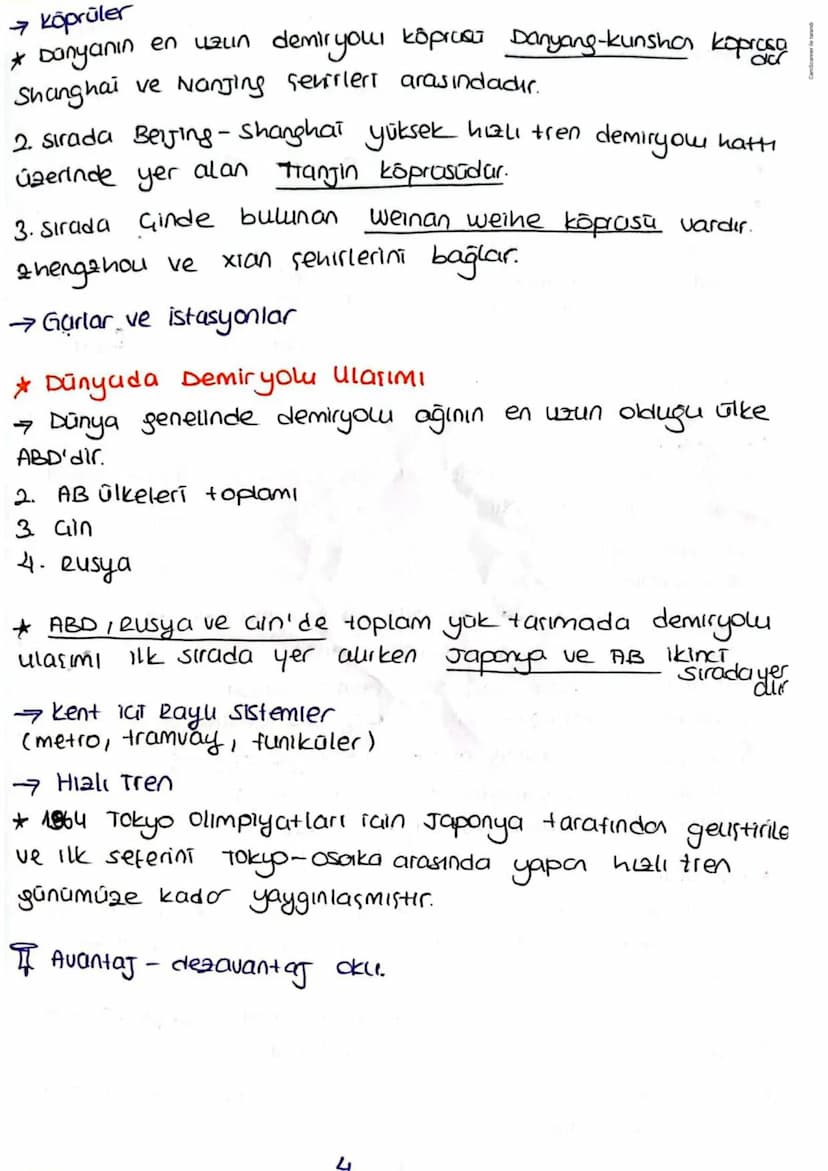 → Köprüler
* Dünyanın en uzun demiryolu köprüsü Danyang-kunshan köprüsü
dür
Shanghai ve Nanjing şehirleri arasındadır.
2. sırada Beijing - Shanghai yüksek hızlı tren demiryolu hattı
üzerinde yer alan Tianjin köprüsüdür.
3. sırada Çinde bulunan Weinan weihe köprüsü vardır.
zhengzhou ve xian şehirlerini bağlar.
→ Garlar ve istasyonlar
* Dünyada Demiryolu Ulaşımı
→ Dünya genelinde demiryolu ağının en uzun olduğu ülke
ABD'dir.
2. AB ülkeleri toplamı
3 Çin
4. Rusya
* ABD, Rusya ve Çin'de toplam yük taşımada demiryolu
ulaşımı ilk sırada yer alırken Japonya ve AB ikinci
sırada yer
dır
→ Kent içi Raylı Sistemler
(metro, tramvay, füniküler)
→ Hızlı Tren
* 1964 Tokyo Olimpiyatları için Japonya tarafından geliştirile
ve ilk seferini Tokyo-osaka arasında yapan hızlı tren
günümüze kadar yaygınlaşmıştır.
Avantaj - dezavantaj oku.
4
CamScanner ile tarandı